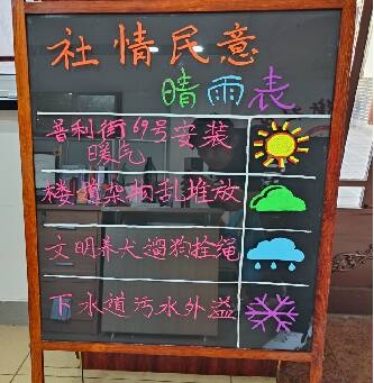 社情民意
晴雨表
普利街69号安装
暖气
楼道杂物乱堆放
文明养犬遛狗拴绳
下水道污水外溢